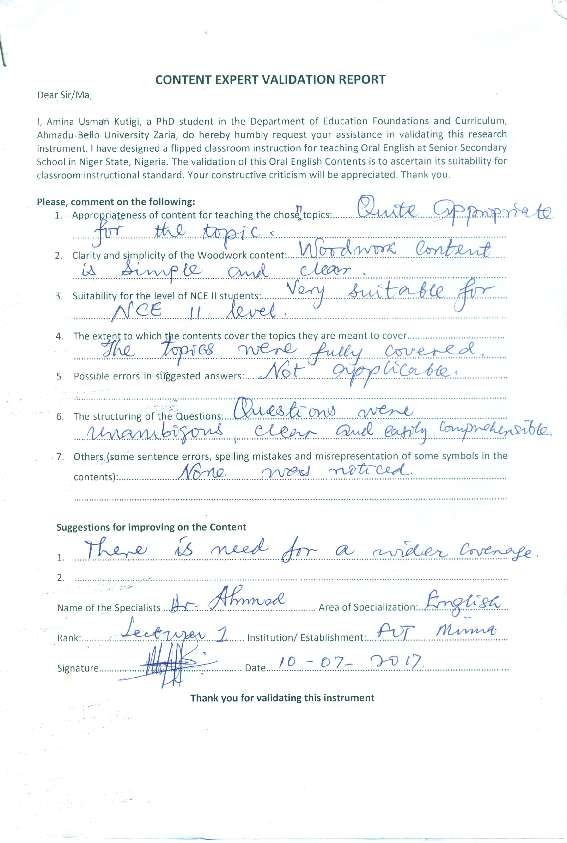 CONTENT EXPERT VALIDATION REPORT
Dear Sir/Ma,
I, Amina Usman Kutigi, a PhD student in the Department of Education Foundations and Curriculum,
Ahmadu-Bello University Zaria, do hereby humbly request your assistance in validating this research
instrument. I have designed a flipped classroom instruction for teaching Oral English at Senior Secondary
School in Niger State, Nigeria. The validation of this Oral English Contents is to ascertain its suitability for
classroom instructional standard. Your constructive criticism will be appreciated. Thank you.
Please, comment on the following:
1. Appropriateness of content for teaching the chosen topics: Quite appropriate
for the topic.
2. Clarity and simplicity of the Woodwork content: Woodwork Content
is simple and clear.
3. Suitability for the level of NCE II students: Very suitable for
NCE II level.
4. The extent to which the contents cover the topics they are meant to cover
The topics were fully covered.
5. Possible errors in suggested answers: Not applicable.
6. The structuring of the Questions: Questions were
unambigous, clear and easily comprehensible.
7. Others (some sentence errors, spelling mistakes and misrepresentation of some symbols in the
contents): None was noticed.
Suggestions for improving on the Content
1. There is need for a wider Coverage.
2.
Name of the Specialists Dr. Ahmad Area of Specialization: English
Rank: Lecturer I Institution/ Establishment: FUT Minna
Signature Date 10-07-2017
Thank you for validating this instrument